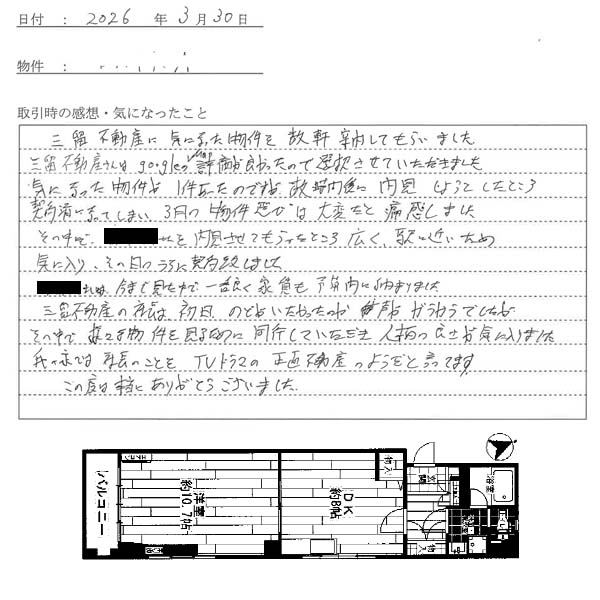 日付 : 2026 年 3月 30日
物件 :
取引時の感想・気になったこと
三留不動産に気になった物件を数軒案内してもらいました
三留不動産さんは googleの Map 評価が良かったので選択させていただきました
気になった物件が1件あったのですが、数時間後に内見しようとしたところ
契約済になってしまい、3月の物件探しは大変だと痛感しました
その中で、 内見させてもらったところ広く、駅に近いため
気に入り、その日のうちに契約しました
今まで見た中で一番良く家賃も予算内に納まりました
三留不動産の社長は、初日、のどをいためたのか声がガラガラでしたが
その中で 物件を見るために同行していただき人柄の良さが気に入りました
我が家では社長のことを TVドラマの正直不動産のようだと言ってます
この度は本当にありがとうございました。
バルコニー
洋室
約10.7帖
DK
約8帖
物入
玄関
浴室
物入